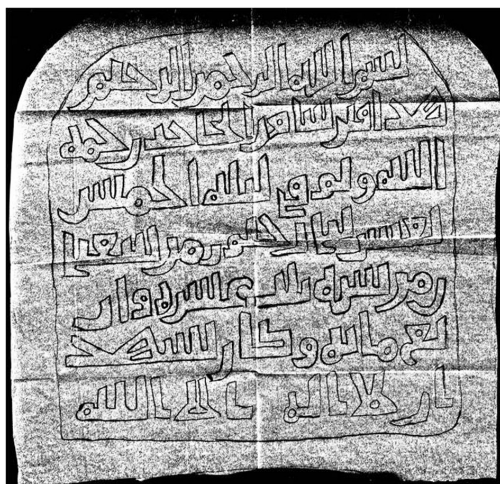 بسم الله الرحمن الرحيم
هذا قبر رحمه
الله وتوفي ليلة الخميس
ليال من شعبا
ن من سنة ثلاث عشرة وار
بع مائة وكان يشهد
ان لا اله الا الله